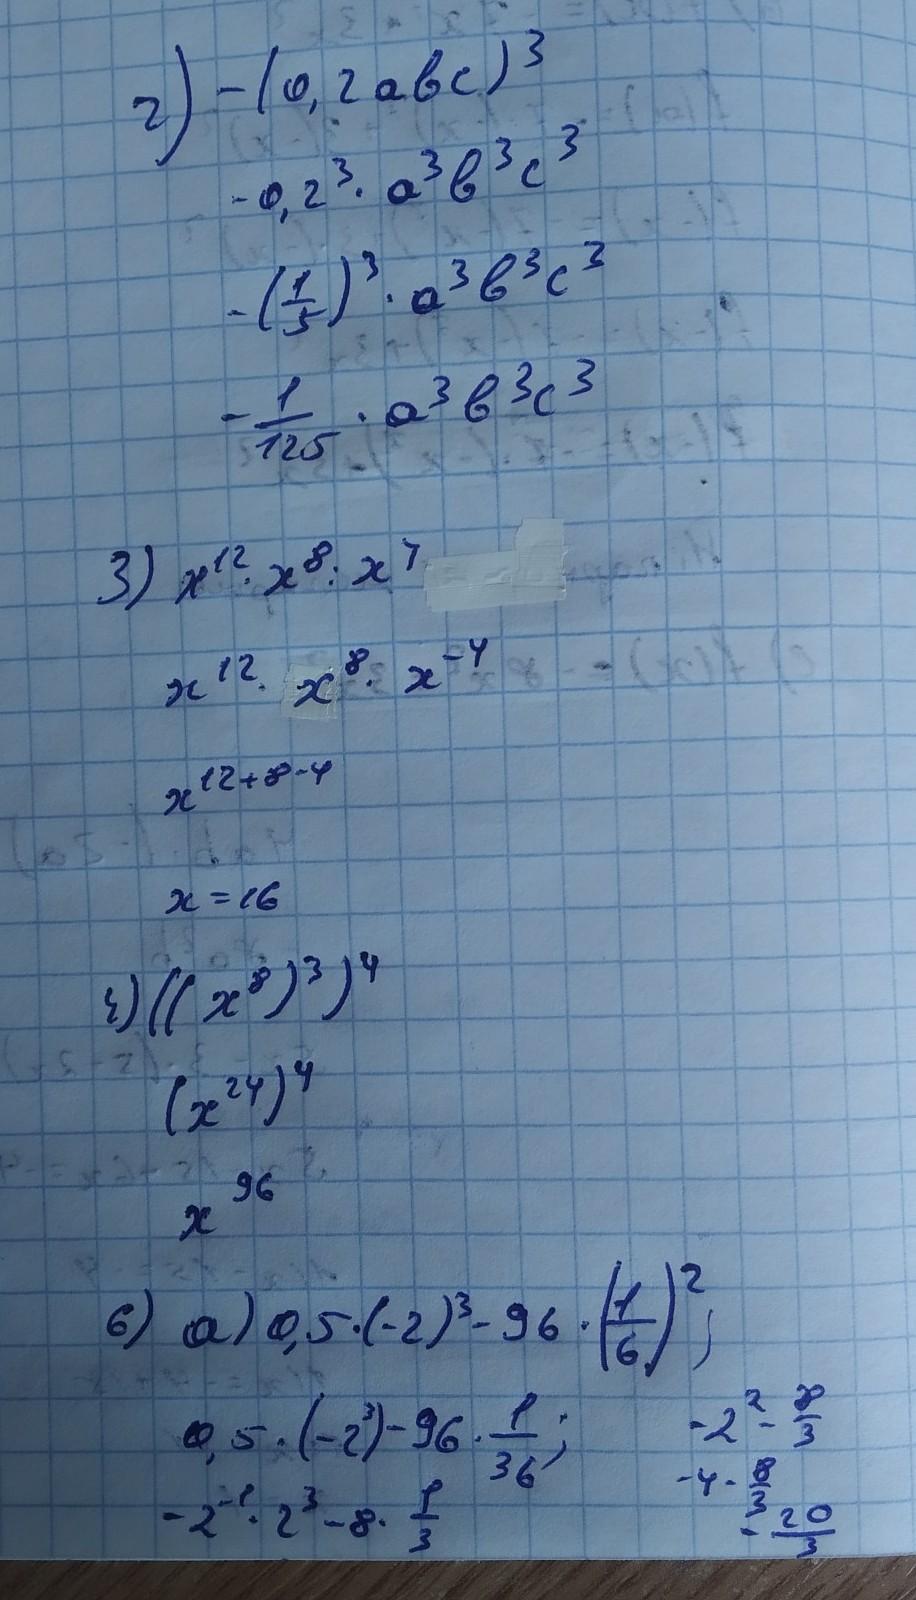 2) -(0,2авс)³
-0,2³ · а³в³с³
-(1/5)³ · а³в³с³
-1/125 · а³в³с³
3) x¹² · x⁸ : x⁴
x¹² · x⁸ · x⁻⁴
x¹²⁺⁸⁻⁴
x = 16
4) ((x⁸)³)⁴
(x²⁴)⁴
x⁹⁶
6) а) 0,5 · (-2)³ - 96 · (1/6)²;
0,5 · (-2³) - 96 · 1/36;
-2⁻¹ · 2³ - 8 · 1/3
-2² - 8/3
-4 - 8/3
-20/3